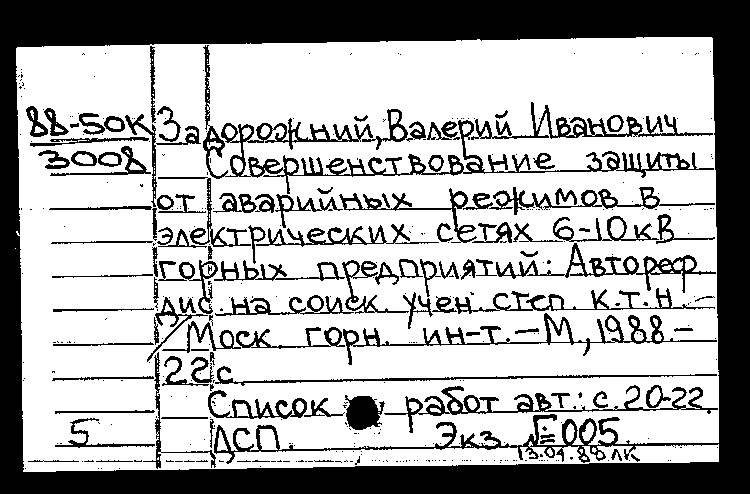 88-50К Задорожний, Валерий Иванович
3008 Совершенствование защиты
от аварийных режимов в
электрических сетях 6-10кВ
горных предприятий: Автореф.
дис. на соиск. учен. степ. к.т.н. -
/Моск. горн. ин-т. - М., 1988.-
22 с.
Список работ авт.: с. 20-22.
5 ДСП. Экз. № 005.